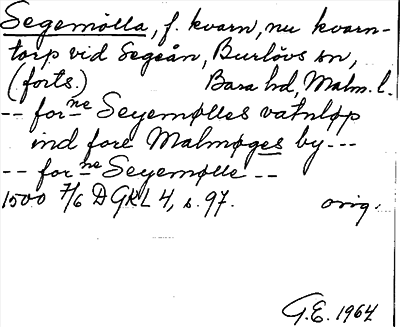 Segemölla, f. kvarn, nu kvarn-
torp vid Segeån, Burlövs sn,
(forts.) Bara hd, Malm. l.
-- for ne Seyemølles vatnløp
ind fore Malmøges by ---
-- for ne Seyemølle ---
1500 7/6 DGKL 4, s. 97. orig.
G.E. 1964